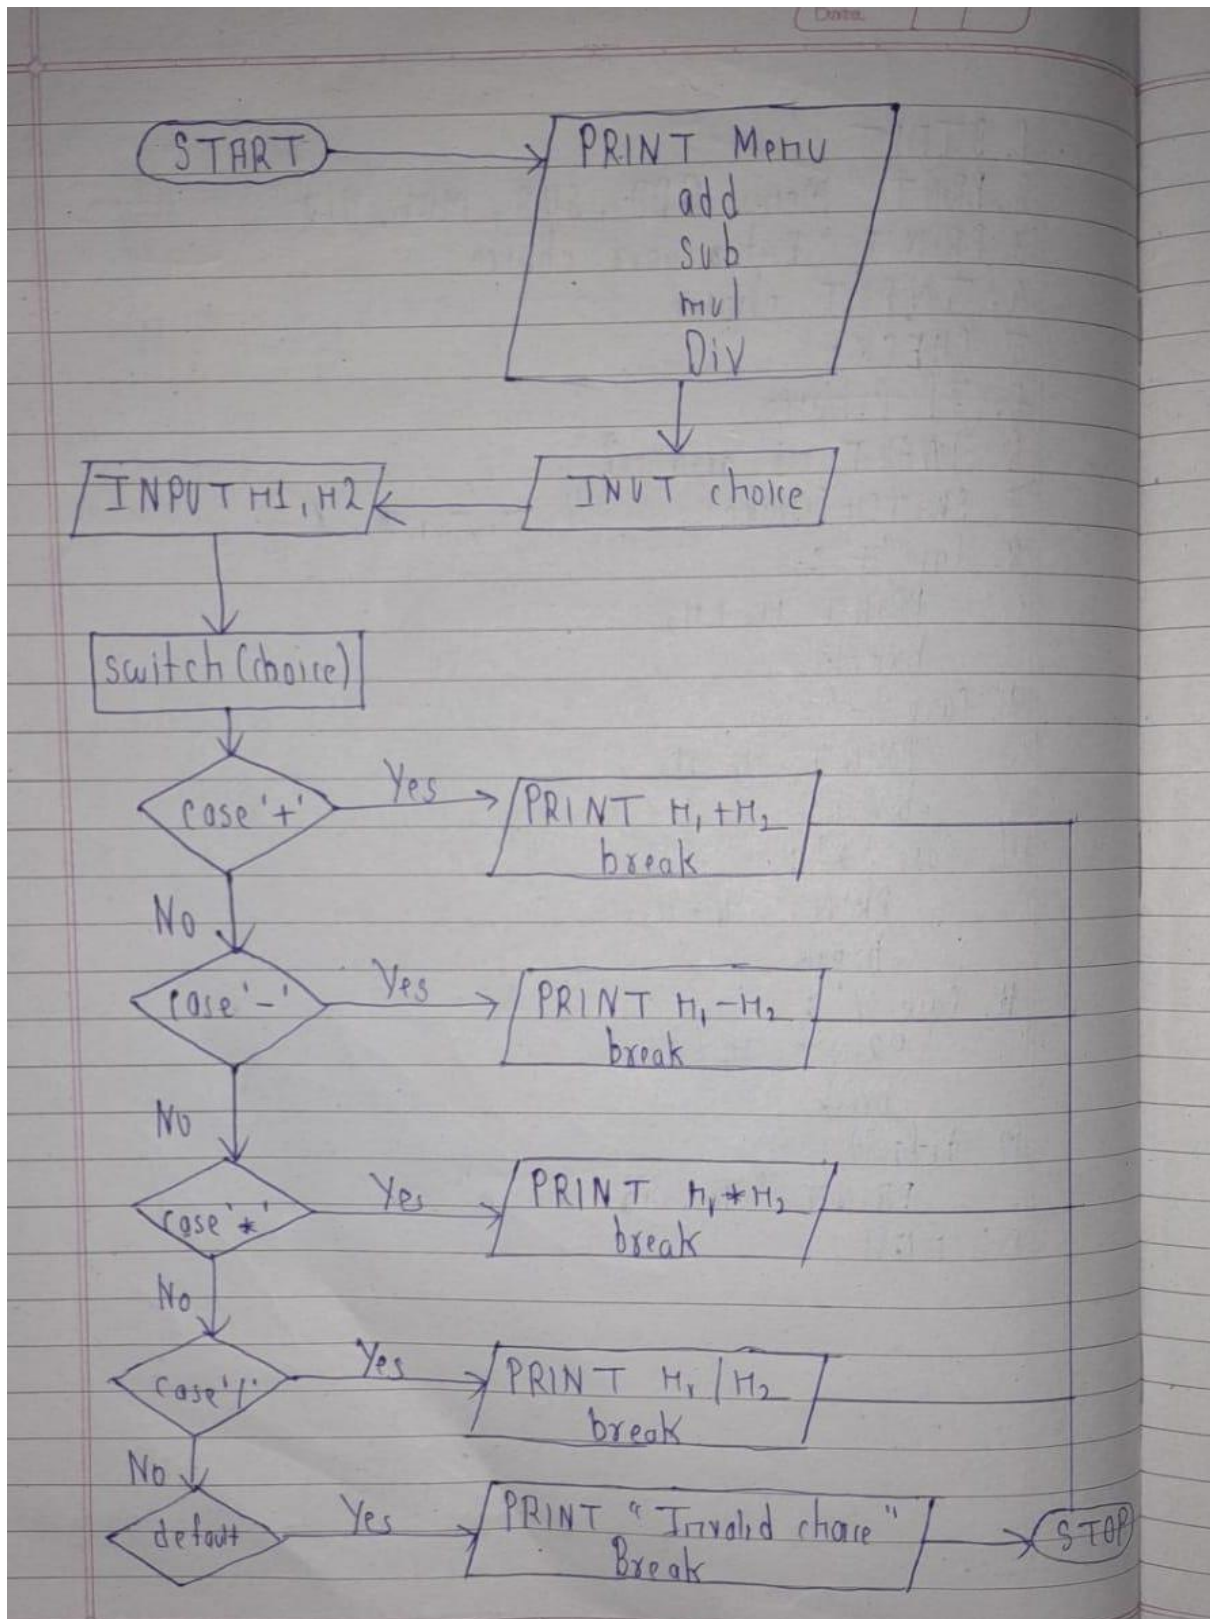 Date
START
PRINT Menu
add
sub
mul
Div
INUT choice
INPUT n1, n2
switch (choice)
case '+'
Yes
PRINT n1+n2
break
No
case '-'
Yes
PRINT n1-n2
break
No
case '*'
Yes
PRINT n1*n2
break
No
case '/'
Yes
PRINT n1/n2
break
No
defaut
Yes
PRINT "Invalid choice"
Break
STOP